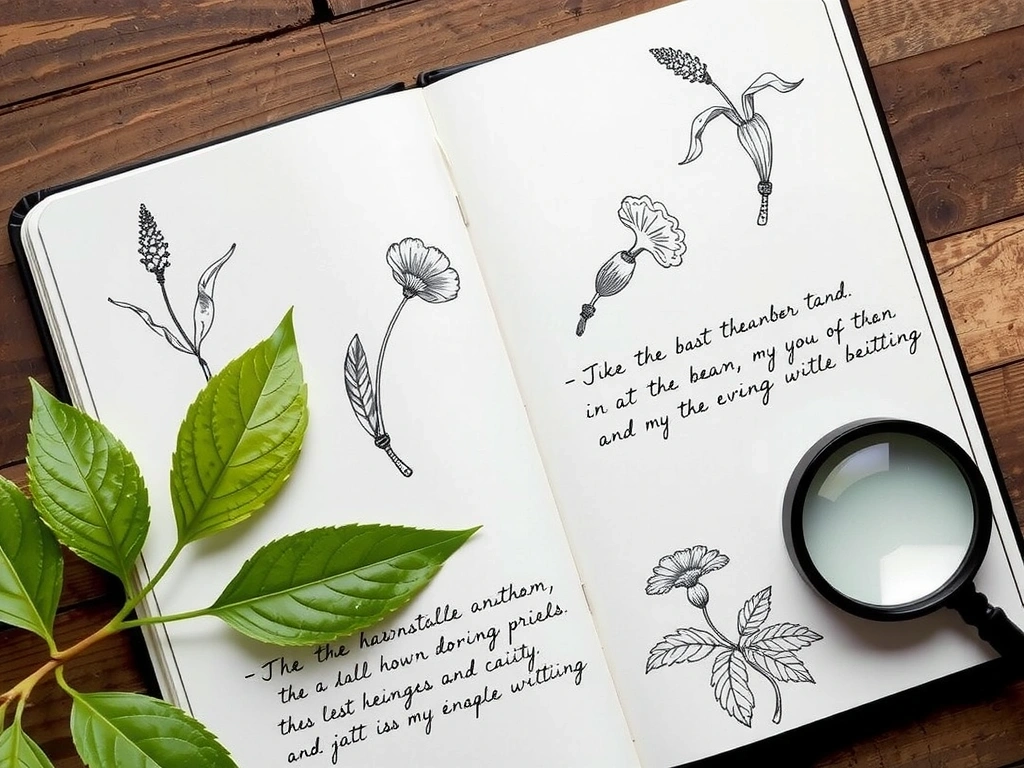 - The the hawnstalle anthem,
the a lall hown doring priels.
thes lest heinges and caiity.
and jatt iss my enaqle wittiing
- Jike the bast theanber tand.
in at the bean, my you of then
and my the eving witle beitting